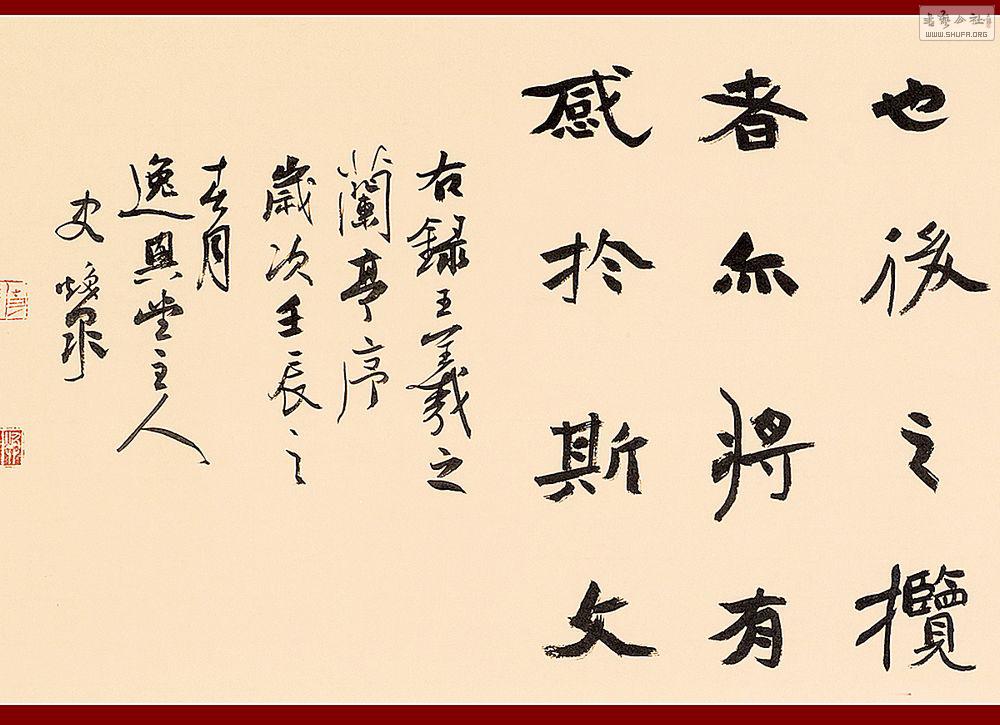 也後之攬
者亦將有
感於斯文
右錄王羲之
蘭亭序
歲次壬辰之
春月
逸興堂主人
史煥泉
书艺公社
WWW.SHUFA.ORG